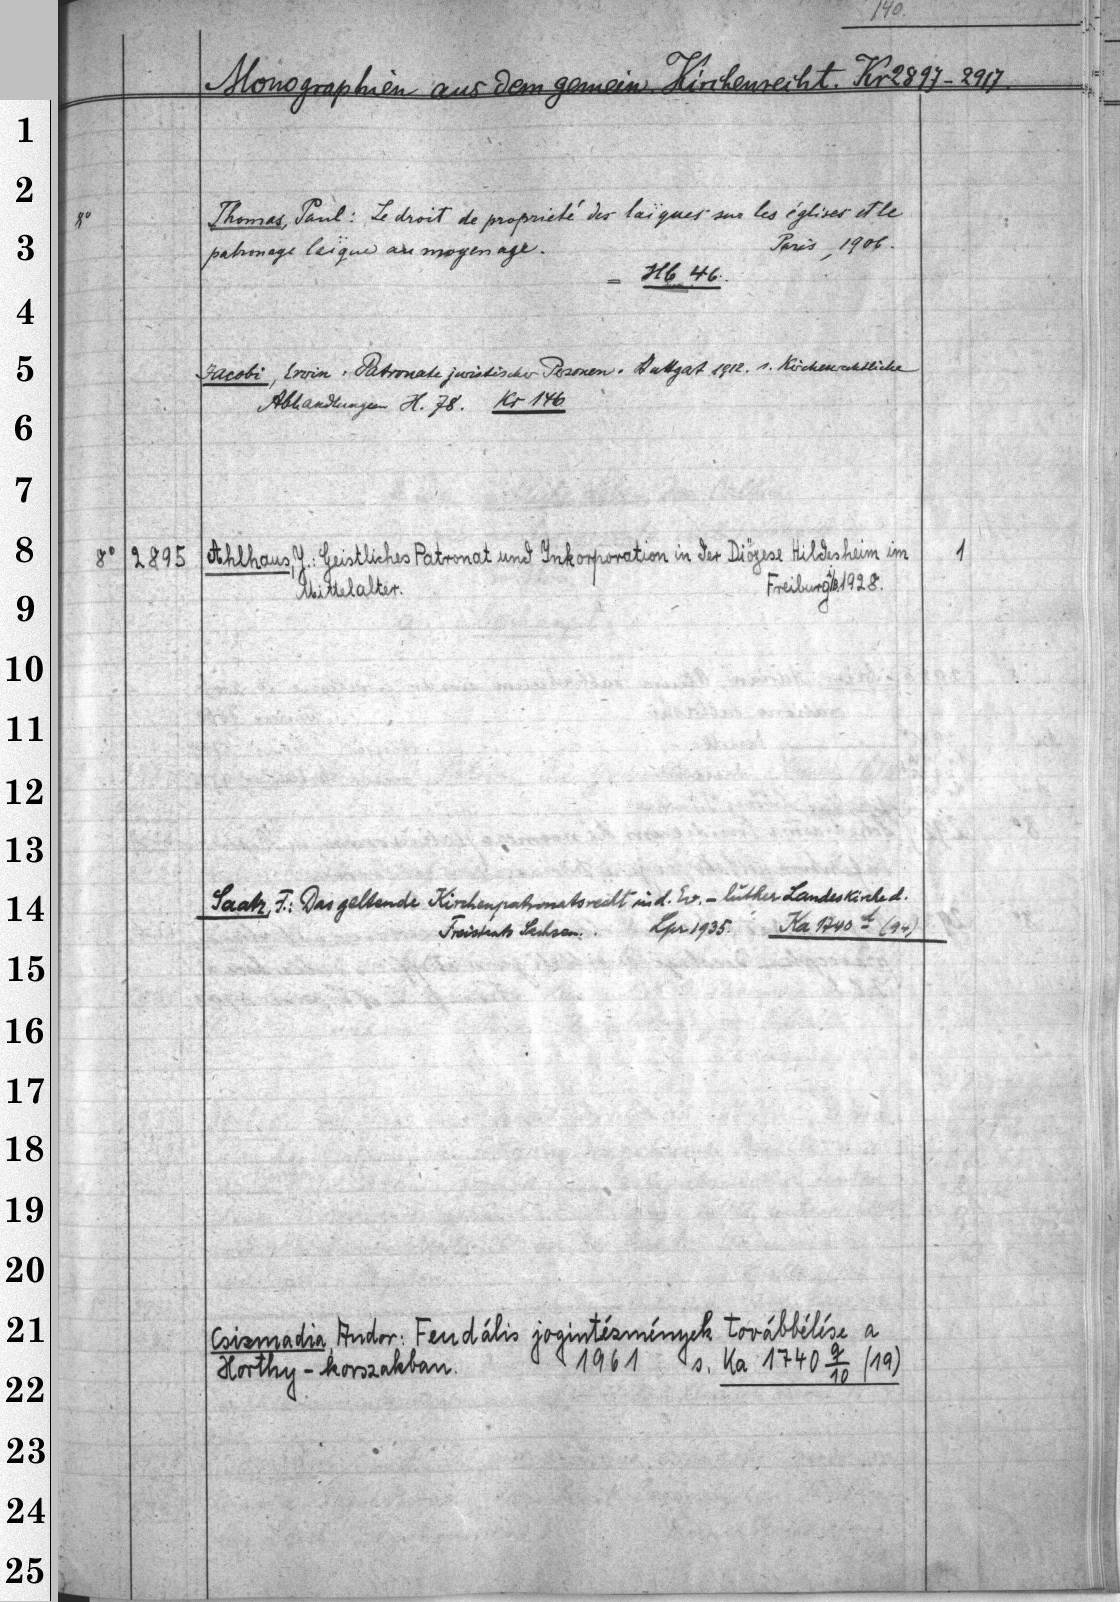 140.
Monographien aus dem gemein. Kirchenrecht. Kr 2897-2917.
1
2
8° Thomas, Paul: Le droit de propriété des laïques sur les églises et le
3
patronage laïque au moyen age. Paris, 1906.
= Hb 46.
4
5
Jacobi, Erwin. Patronate juristischer Personen. Stuttgat 1912. s. Kirchenrechtliche
Abhandlungen H. 78. Kr 146
6
7
8
8° 2895 Ahlhaus, J.: Geistliches Patronat und Inkorporation in der Diözese Hildesheim im 1
Mittelalter. Freiburg i/B. 1928.
9
10
11
12
13
14
Saatz, F.: Das geltende Kirchenpatronatsrecht in d. Ev.-luther Landeskirche d.
Freistaats Sachsen. Lpz 1935. Ka 1740 (94)
15
16
17
18
19
20
21
Csizmadia, Andor: Feudális jogintézmények továbbélése a
Horthy-korszakban. 1961 s. Ka 1740 9/10 (19)
22
23
24
25